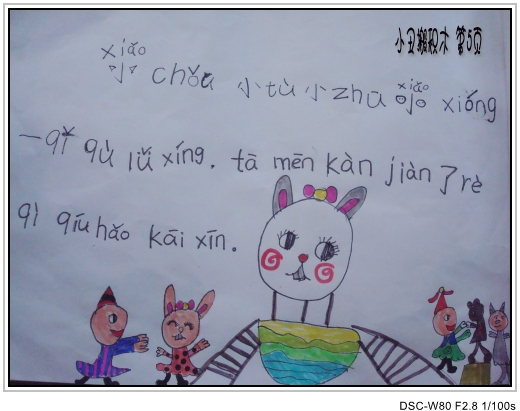 小丑搬积木 第5页
xiǎo
小 chǒu 小tù 小zhū xiǎo 小 xióng
一qǐ qù lǚ xíng. tā mēn kàn jiàn 了rè
qì qíu hǎo kāi xīn。
DSC-W80 F2.8 1/100s